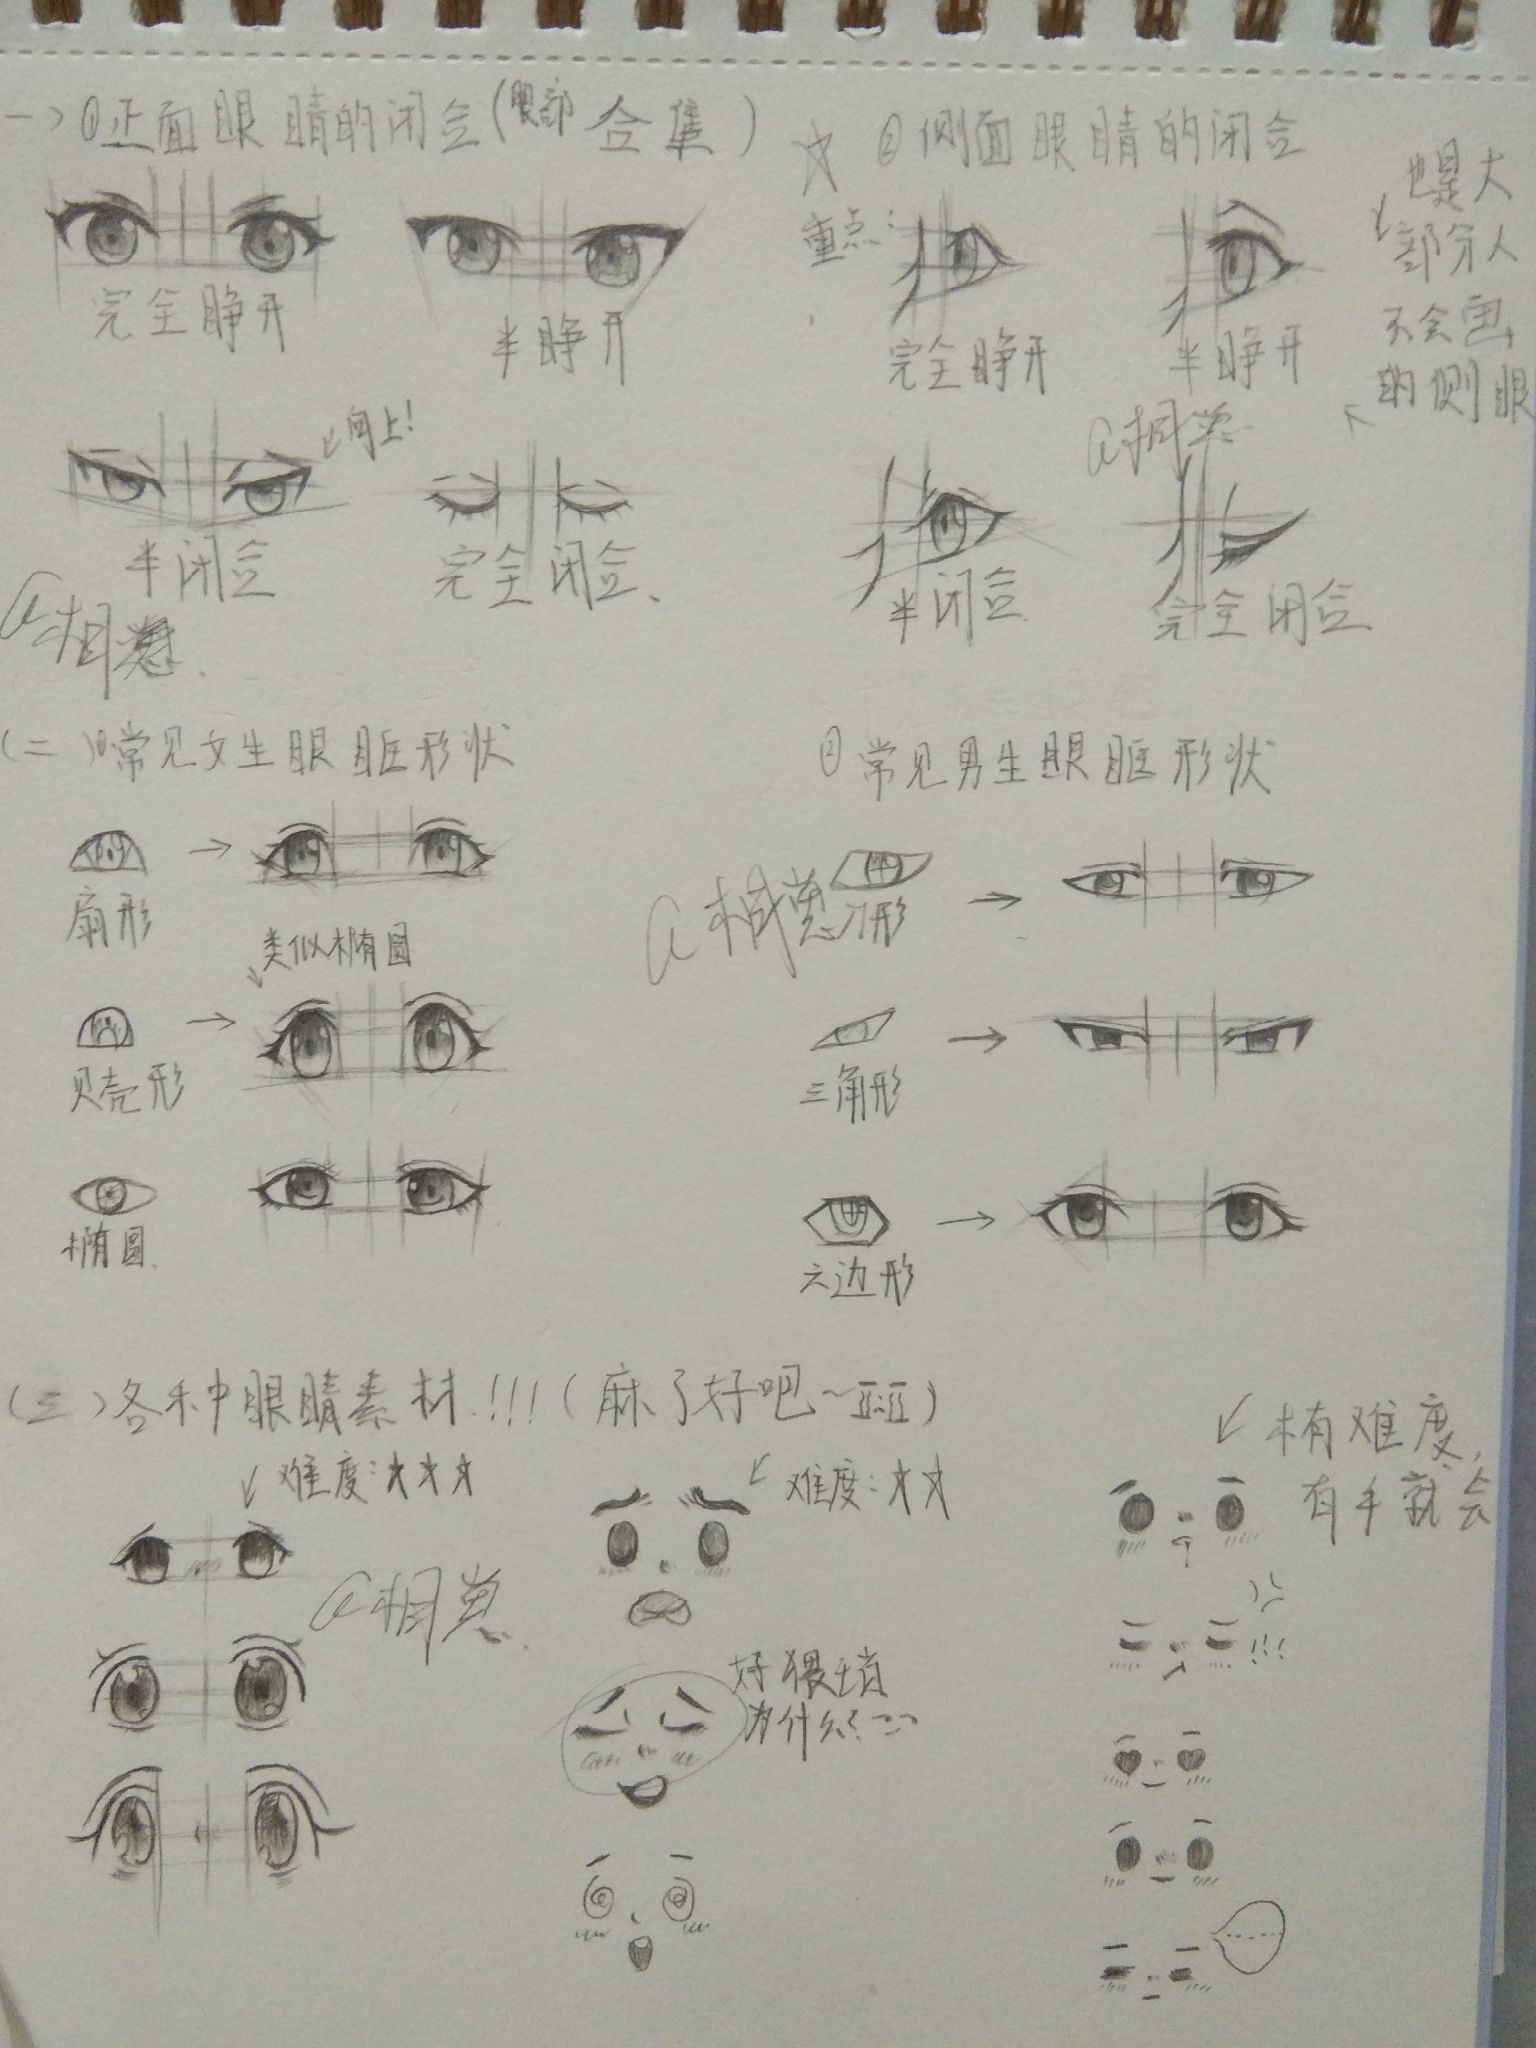 一 > ①正面眼睛的闭合(眼部合集)
完全睁开
半睁开
向上!
半闭合
完全闭合、
☆ ②侧面眼睛的闭合
重点:
完全睁开
半睁开
也是大
部分人
不会画
的侧眼
半闭合
完全闭合
(二)①常见女生眼眶形状
扇形
类似椭圆
贝壳形
椭圆
②常见男生眼眶形状
刀形
三角形
六边形
(三)各种眼睛素材!!!(麻了好吧~
难度:☆☆☆
难度:☆☆
好猥琐
为什么?
难度,
有手就会
!!!